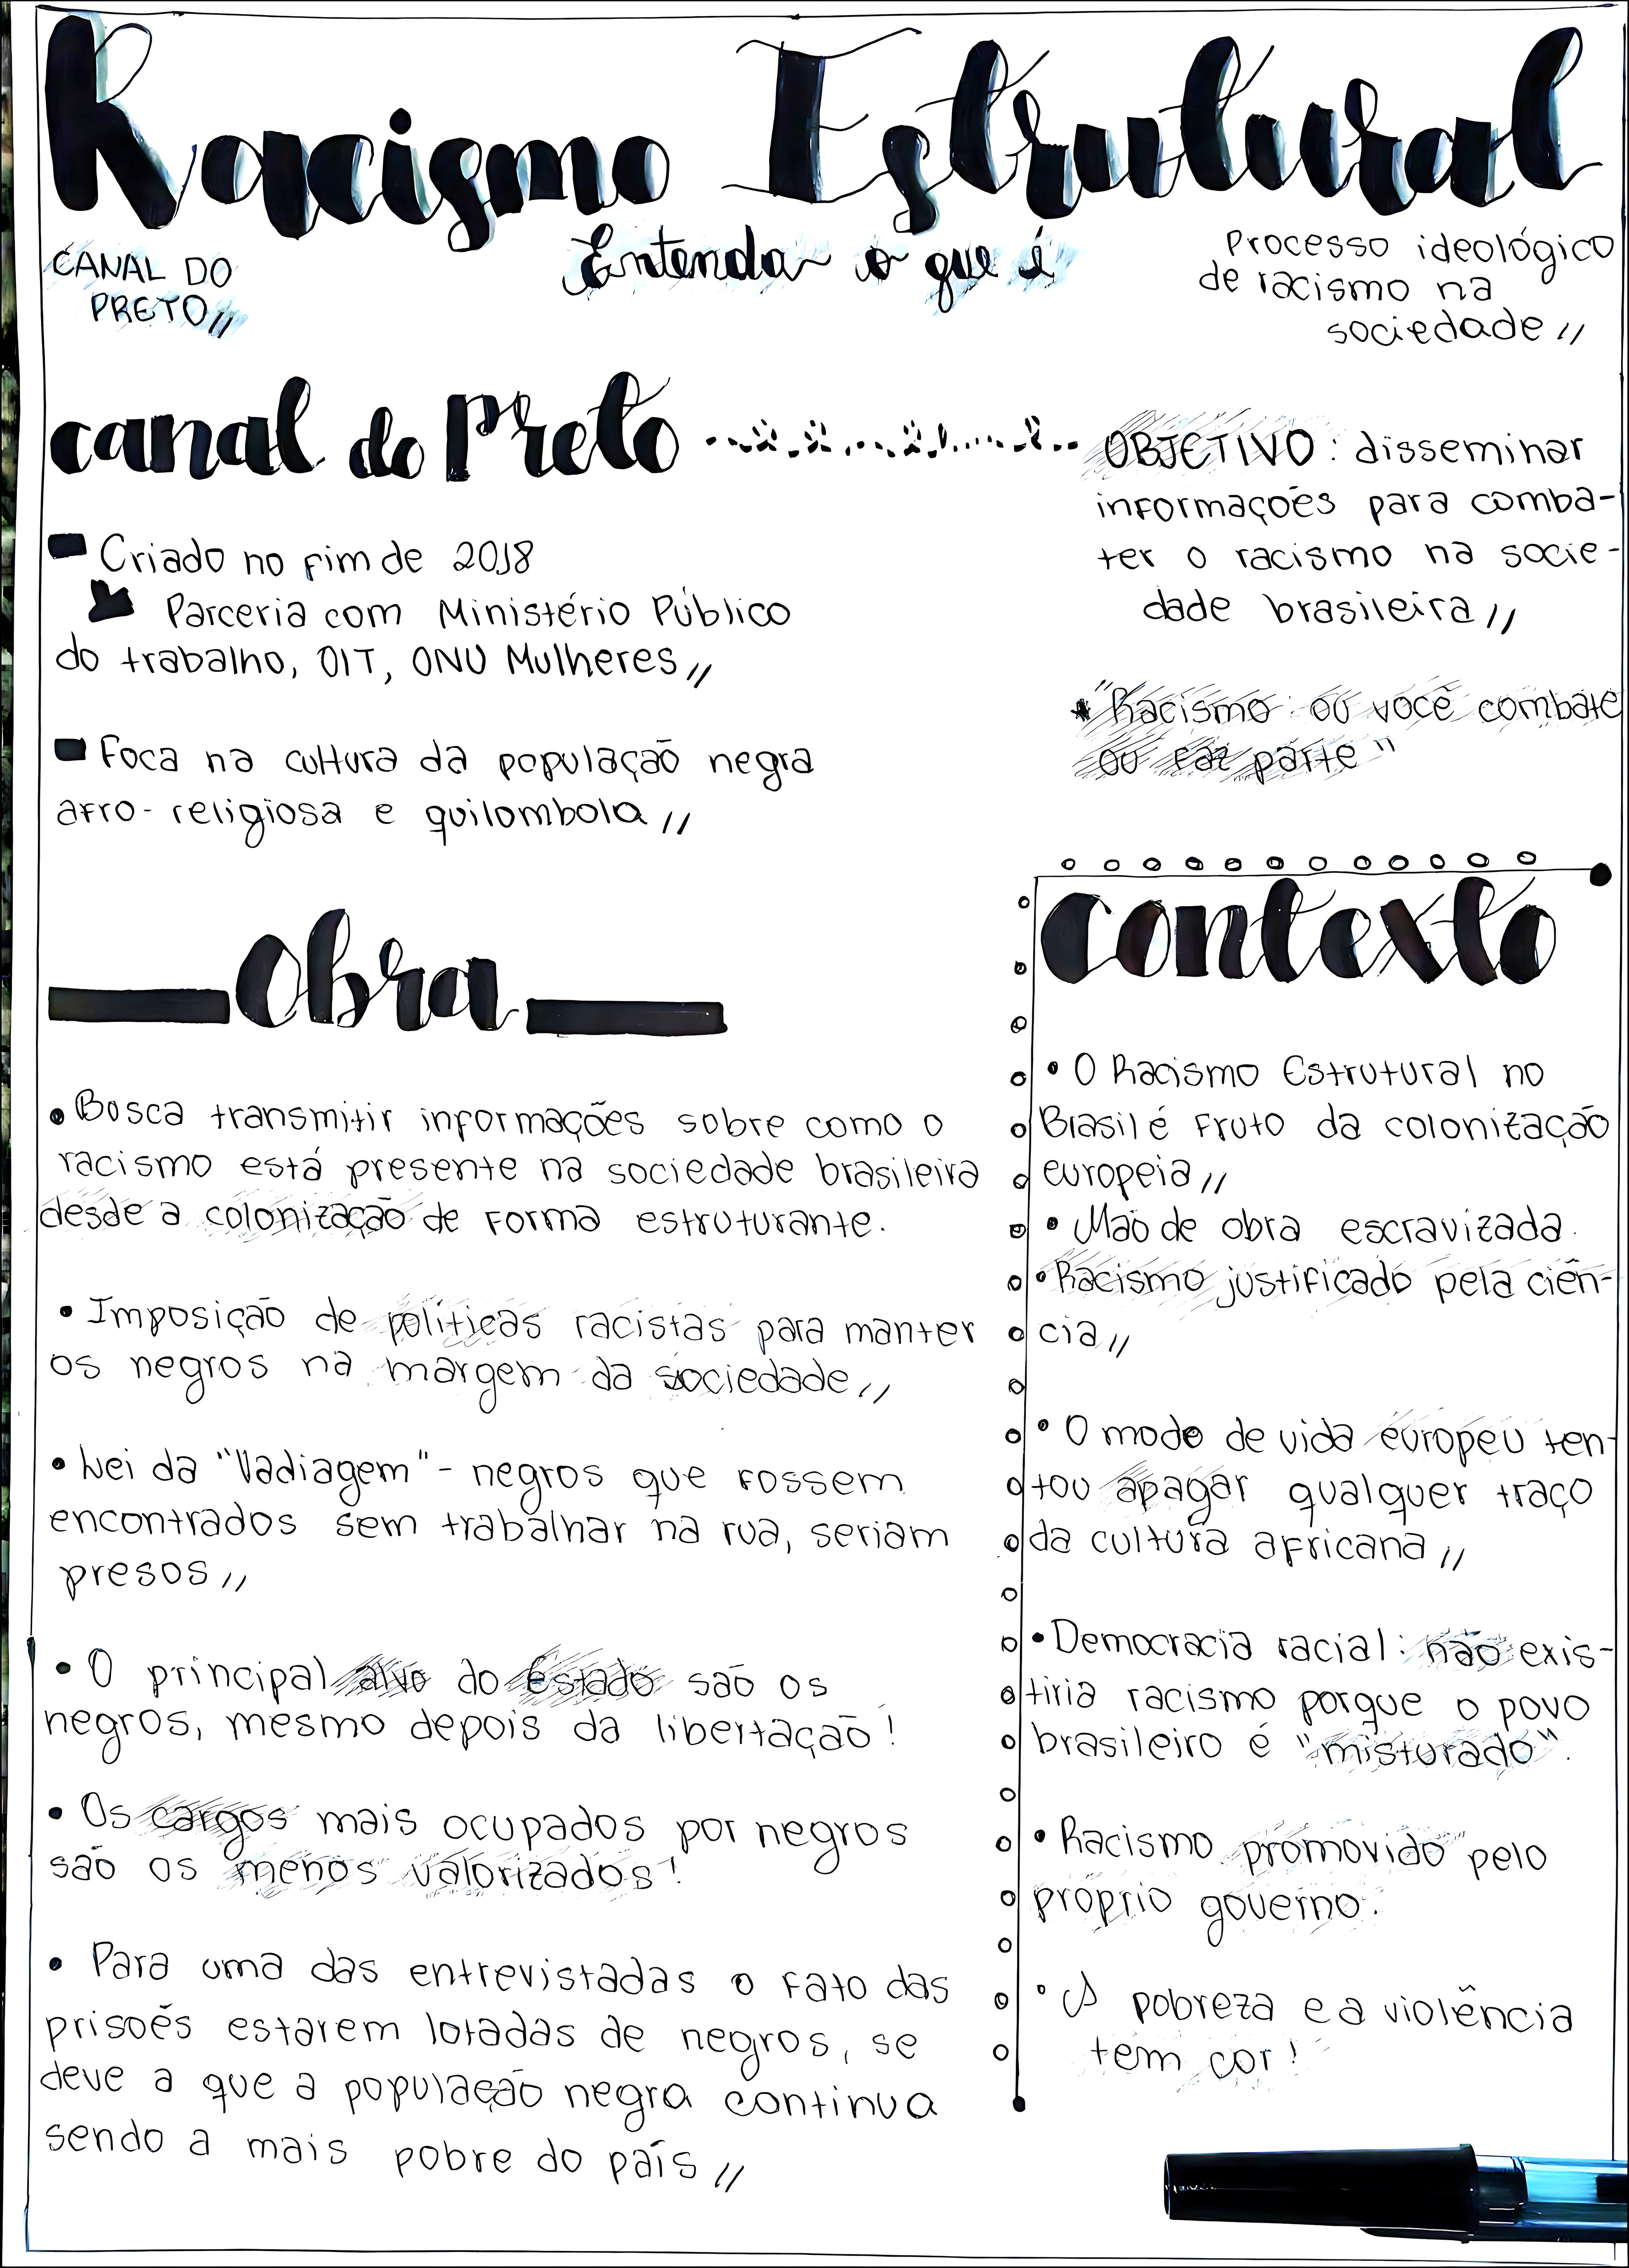 Racismo Estrutural
Entenda o que é
CANAL DO
PRETO//
Processo ideológico
de racismo na
sociedade //
canal do Preto
OBJETIVO: disseminar
informações para comba-
ter o racismo na socie-
dade brasileira//
* "Racismo: ou você combate
ou faz parte"
Criado no fim de 2018
Parceria com Ministério Público
do trabalho, OIT, ONU Mulheres//
Foca na cultura da população negra
afro-religiosa e quilombola//
Obra
• Busca transmitir informações sobre como o
racismo está presente na sociedade brasileira
desde a colonização de forma estruturante.
• Imposição de políticas racistas para manter
os negros na margem da sociedade//
• Lei da "Vadiagem" - negros que fossem
encontrados sem trabalhar na rua, seriam
presos//
• O principal alvo do Estado são os
negros, mesmo depois da libertação!
• Os cargos mais ocupados por negros
são os menos valorizados!
• Para uma das entrevistadas o fato das
prisões estarem lotadas de negros, se
deve a que a população negra continua
sendo a mais pobre do país//
contexto
• O Racismo Estrutural no
Brasil é fruto da colonização
europeia//
• Mão de obra escravizada.
• Racismo justificado pela ciên-
cia//
• O modo de vida europeu ten-
tou apagar qualquer traço
da cultura africana//
• Democracia racial: não exis-
tiria racismo porque o povo
brasileiro é "misturado".
• Racismo promovido pelo
próprio governo.
• A pobreza e a violência
têm cor!